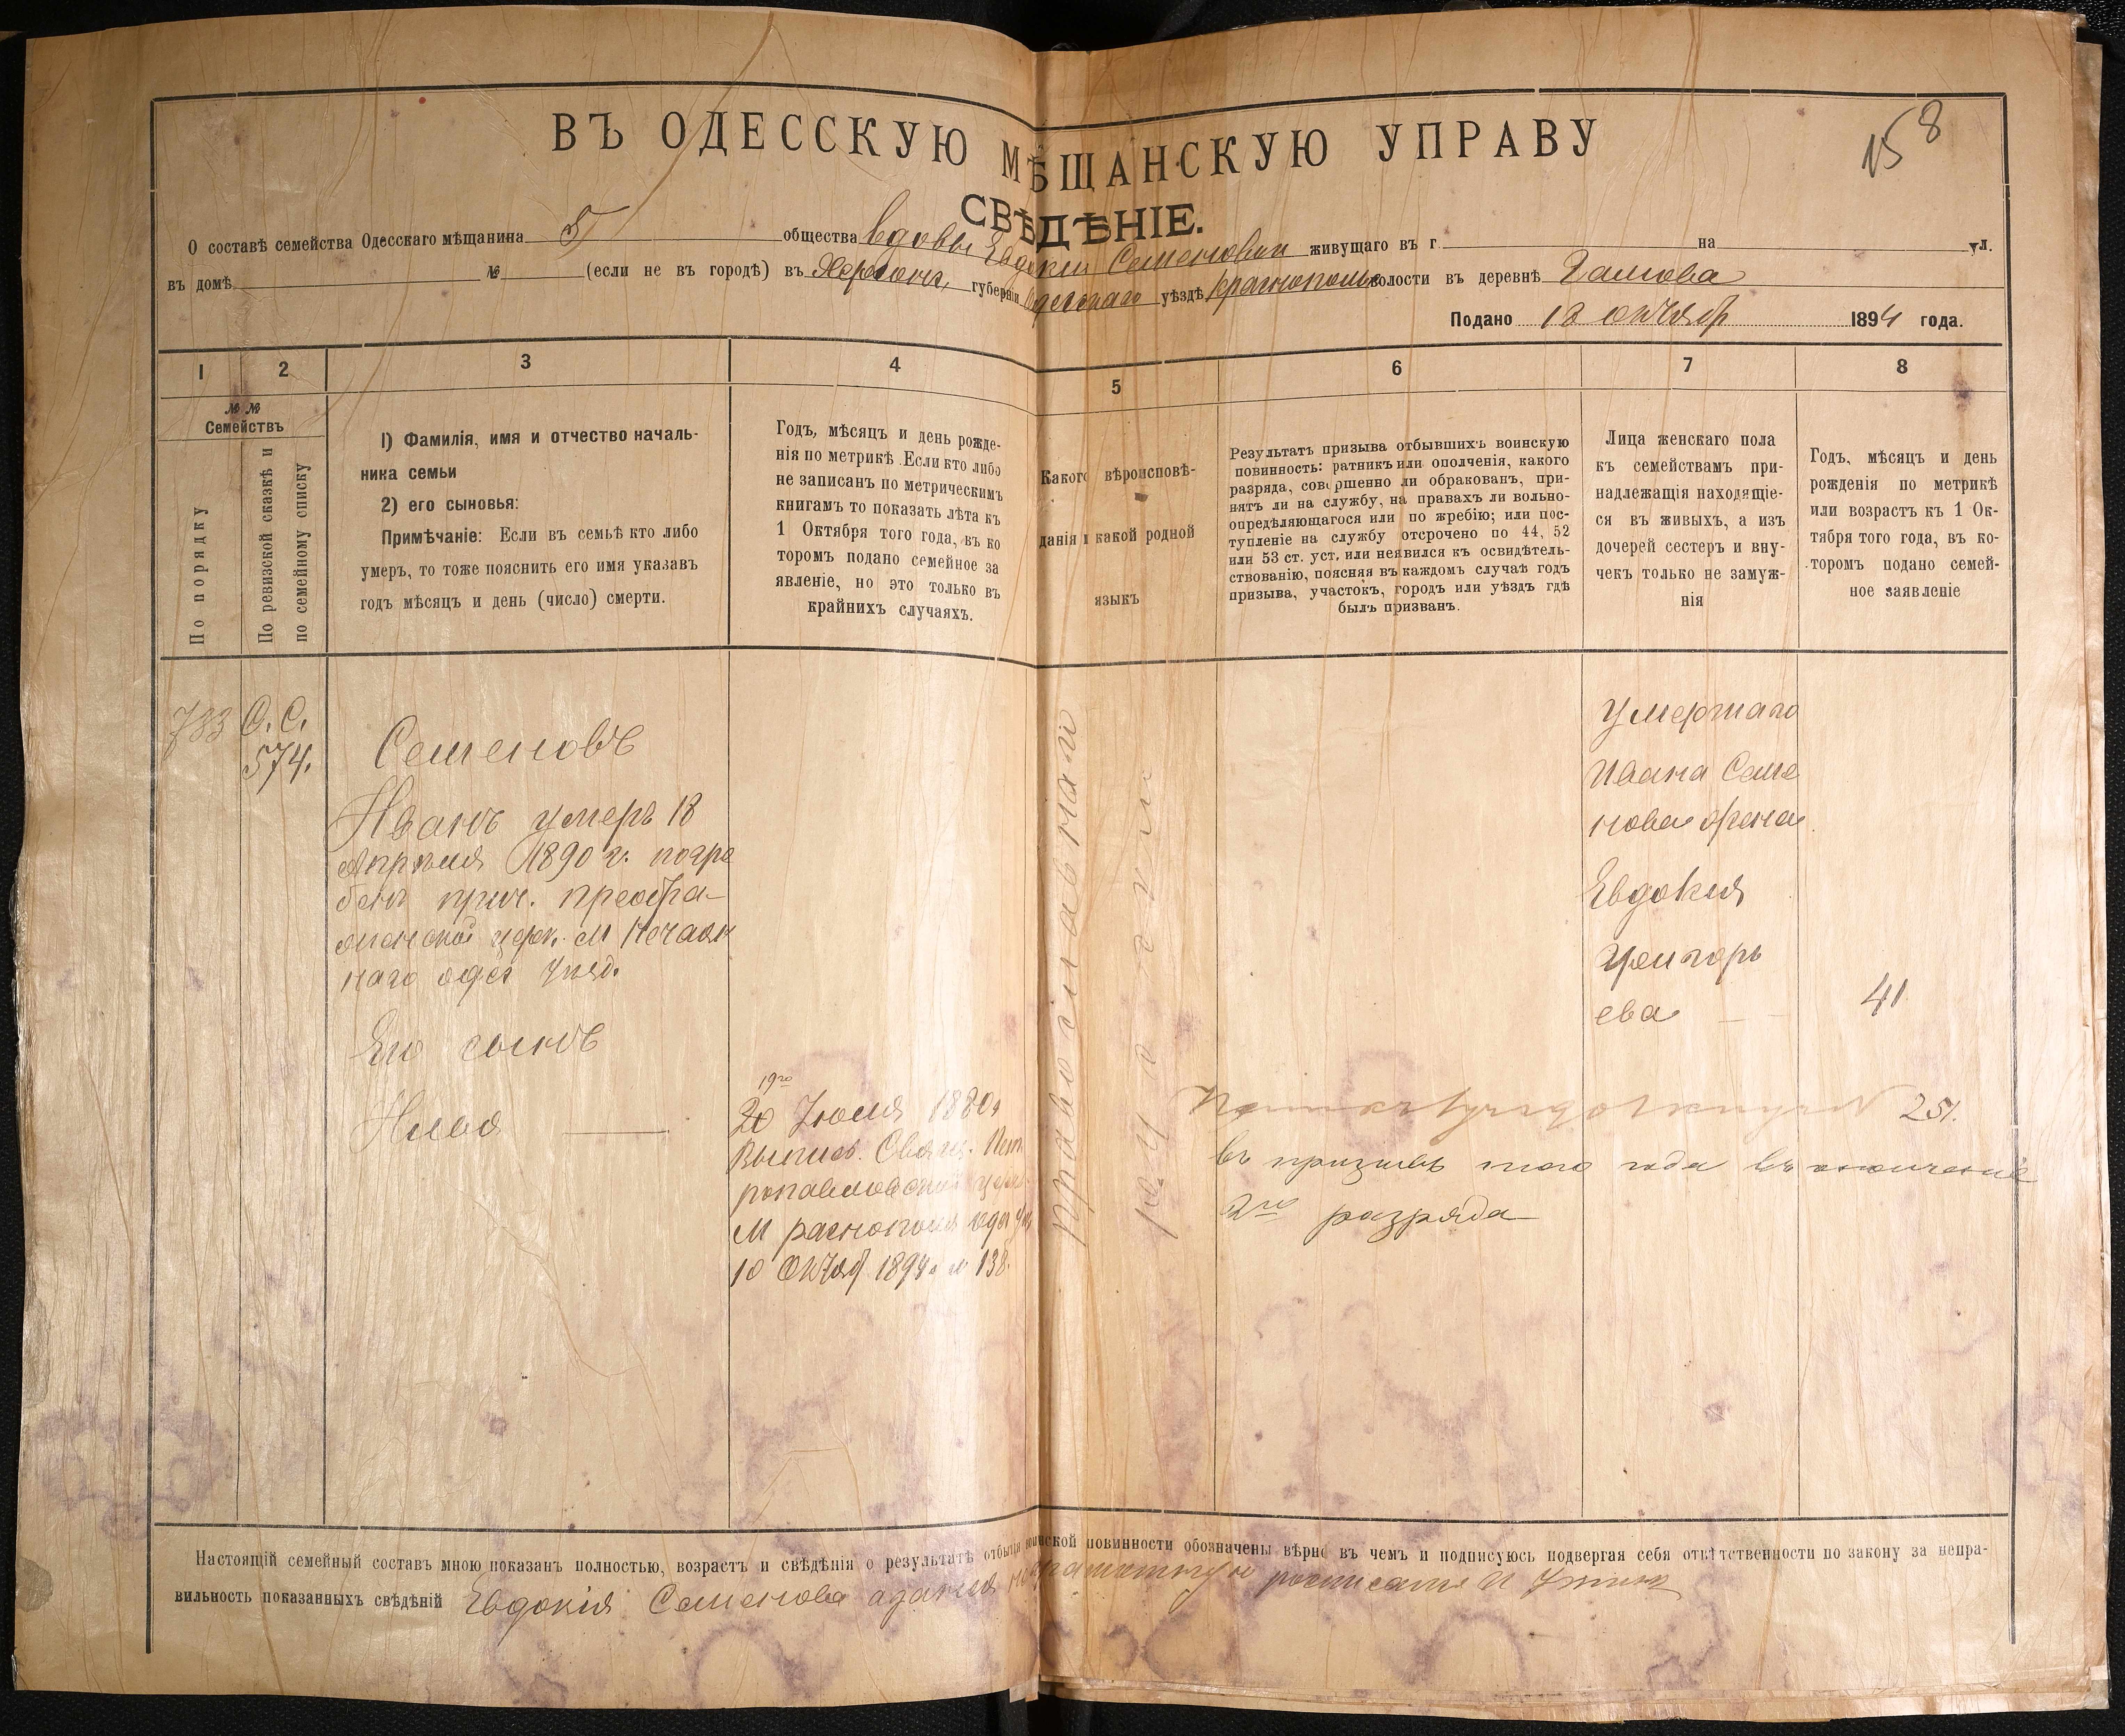 ВЪ ОДЕССКУЮ МѢЩАНСКУЮ УПРАВУ
158
СВѢДѢНІЕ.
О составѣ семейства Одесскаго мѣщанина 5 общества вдовы Евдокіи Семеновой живущаго въ г. на ул.
въ домѣ № (если не въ городѣ) въ Херсон. губерніи Одесскаго уѣздѣ волости въ деревнѣ
Подано 18 октября 1894 года.
1 2 3 4 5 6 7 8
№ №
Семействъ
По порядку
По ревизской сказкѣ и
по семейному списку
1) Фамилія, имя и отчество началь-
ника семьи
2) его сыновья:
Примѣчаніе: Если въ семьѣ кто либо
умеръ, то тоже пояснить его имя указавъ
годъ мѣсяцъ и день (число) смерти.
Годъ, мѣсяцъ и день рожде-
нія по метрикѣ. Если кто либо
не записанъ по метрическимъ
книгамъ то показать лѣта къ
1 Октября того года, въ ко
торомъ подано семейное за
явленіе, но это только въ
крайнихъ случаяхъ.
Какого вѣроисповѣ-
данія и какой родной
языкъ
Результатъ призыва отбывшихъ воинскую
повинность: ратникъ или ополченія, какого
разряда, совершенно ли обракованъ, при-
нятъ ли на службу, на правахъ ли вольно-
опредѣляющагося или по жребію; или пос-
тупленіе на службу отсрочено по 44, 52
или 53 ст. уст. или неявился къ освидѣтель-
ствованію, поясняя въ каждомъ случаѣ годъ
призыва, участокъ, городъ или уѣздъ гдѣ
былъ призванъ.
Лица женскаго пола
къ семействамъ при-
надлежащія находящіе-
ся въ живыхъ, а изъ
дочерей сестеръ и вну-
чекъ только не замуж-
нія
Годъ, мѣсяцъ и день
рожденія по метрикѣ
или возрастъ къ 1 Ок-
тября того года, въ ко-
торомъ подано семей-
ное заявленіе
783
О. С.
574.
Семеновъ
Иванъ умеръ 18
Апрѣля 1890 г. погре
бенъ прич. преобра-
женской церк. м Нечаян
наго одес уѣзд.
Его сынъ
Илья
19го
20 Іюля 1880г
Выпись. Свящ. Пет
ропавловской церк.
10 Октяб 1894г № 138.
православной
русскій
Умершаго
Ивана Семе
нова жена
Евдокія
Григорь
ева
41
251.
въ призывъ того года въ ополченіе
2го разряда
Настоящій семейный составъ мною показанъ полностью, возрастъ и свѣдѣнія о результатѣ отбытія воинской повинности обозначены вѣрно въ чемъ и подписуюсь подвергая себя отвѣтственности по закону за непра-
вильность показанныхъ свѣдѣній Евдокія Семенова а за нея неграмотную росписался И